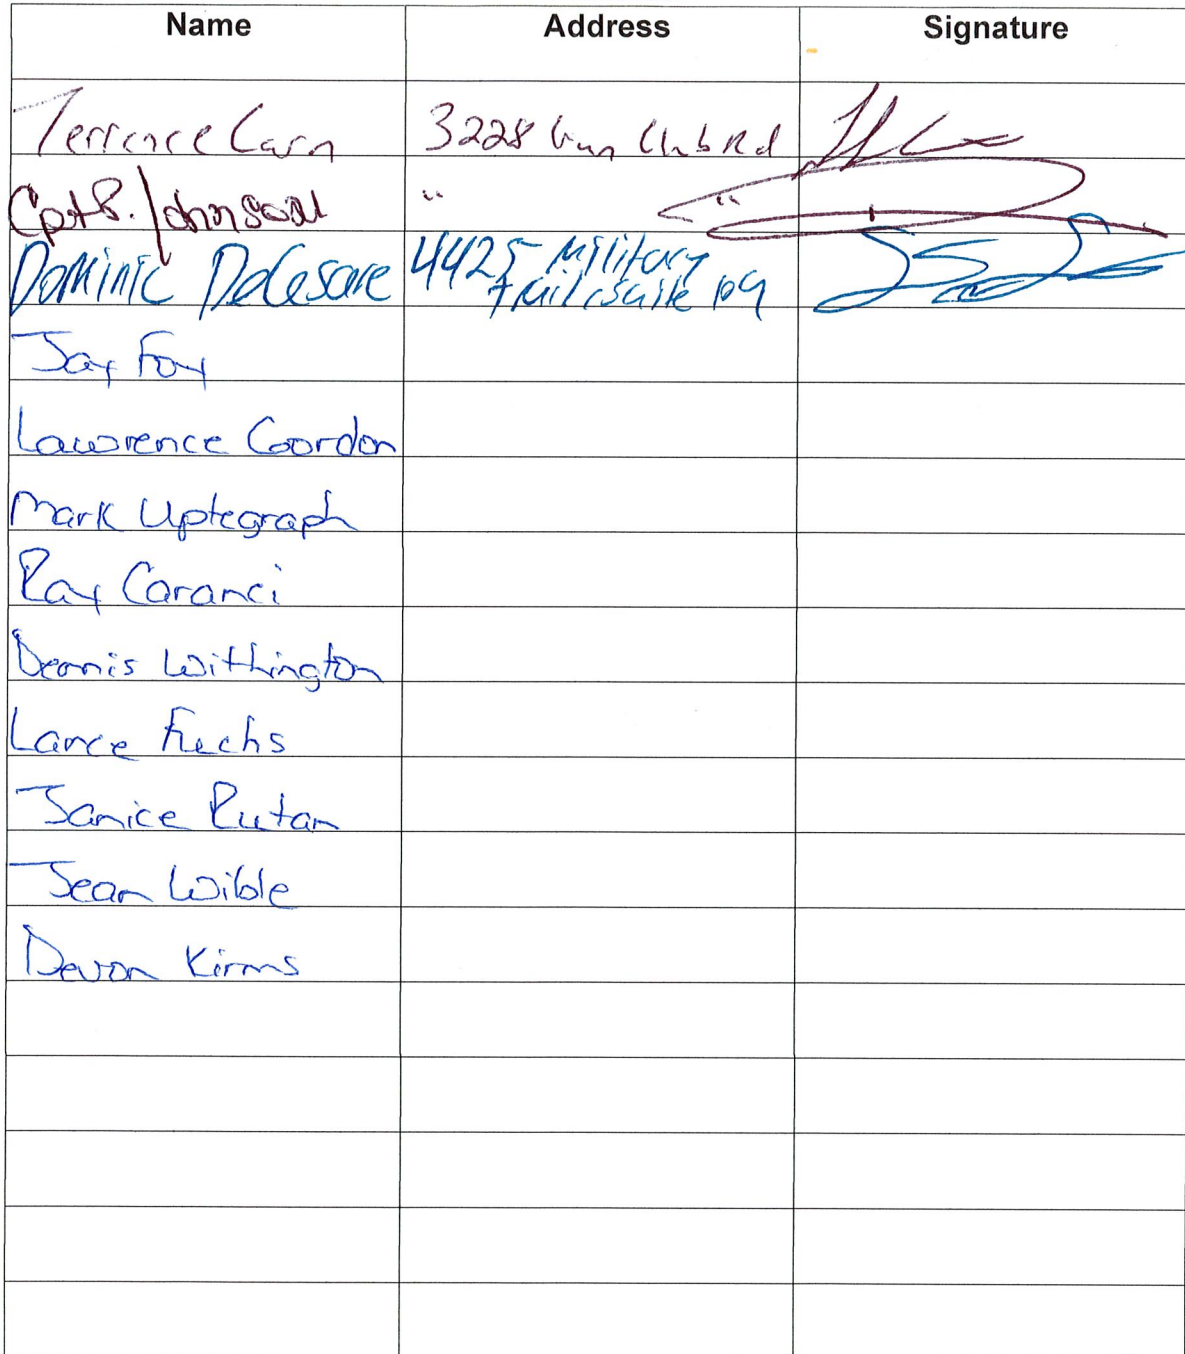 Name Address Signature
Terrence Carn 3228 Gun Club Rd
Cpt B. Johnson " "
Dominic DeCesare 4425 Military
Trail, Suite 109
Jay Foy
Lawrence Gordon
Mark Uptegraph
Ray Caranci
Dennis Withington
Lance Fuchs
Janice Rutan
Jean Wible
Devon Kirms